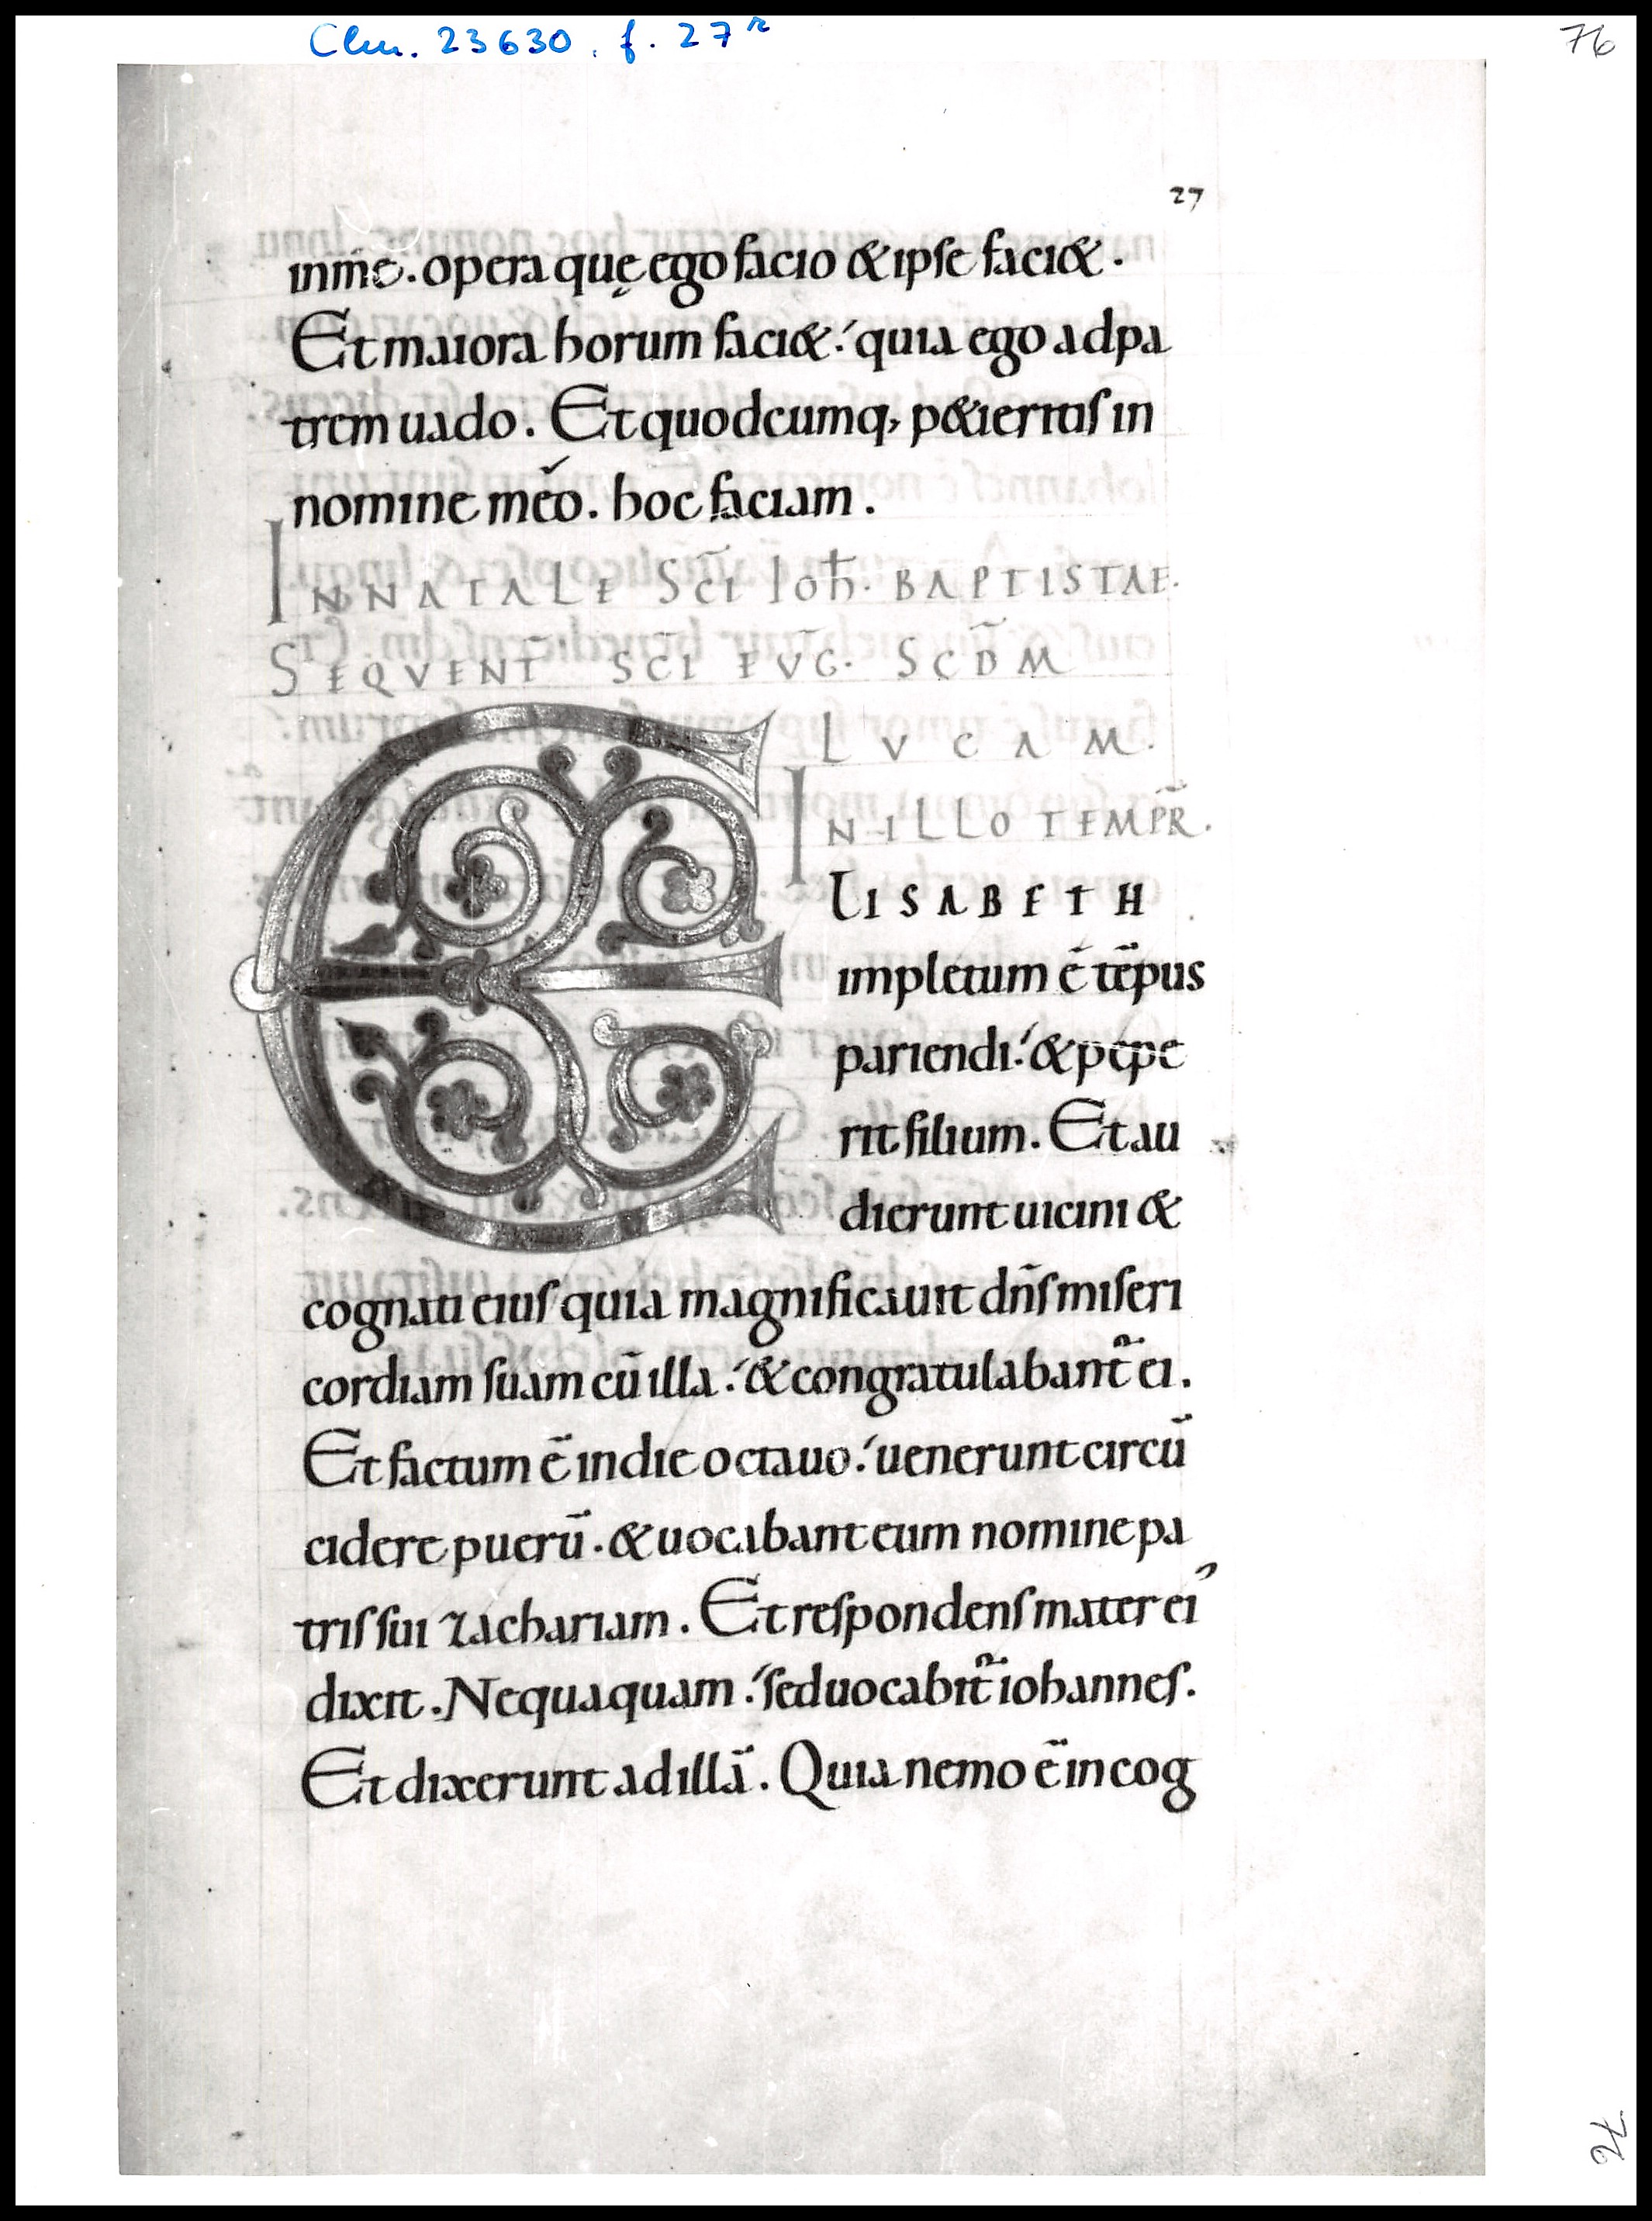 Clm. 23630. f. 27r
76
27
inme. opera quę ego facio & ipse faci&.
Et maiora horum faci&: quia ego ad pa
trem uado. Et quodcumq; p&ieritis in
nomine meo. hoc faciam.
IN NATALE SC̄I Ioh̄. BAPTISTAE.
SEQVENT̄ SC̄I EVḠ. SCD̄M
LVCAM.
IN ILLO TEMPR̄.
ELISABETH
impletum ē tēpus
pariendi: & pepe
rit filium. Et au
dierunt uicini &
cognati eius quia magnificauit dn̄s miseri
cordiam suam cū illa: & congratulabant̄ ei.
Et factum ē in die octauo: uenerunt circū
cidere puerū. & uocabant eum nomine pa
tris sui zachariam. Et respondens mater ei'
dixit. Nequaquam: sed uocabit̄ iohannes.
Et dixerunt ad illā. Quia nemo ē in cog
76